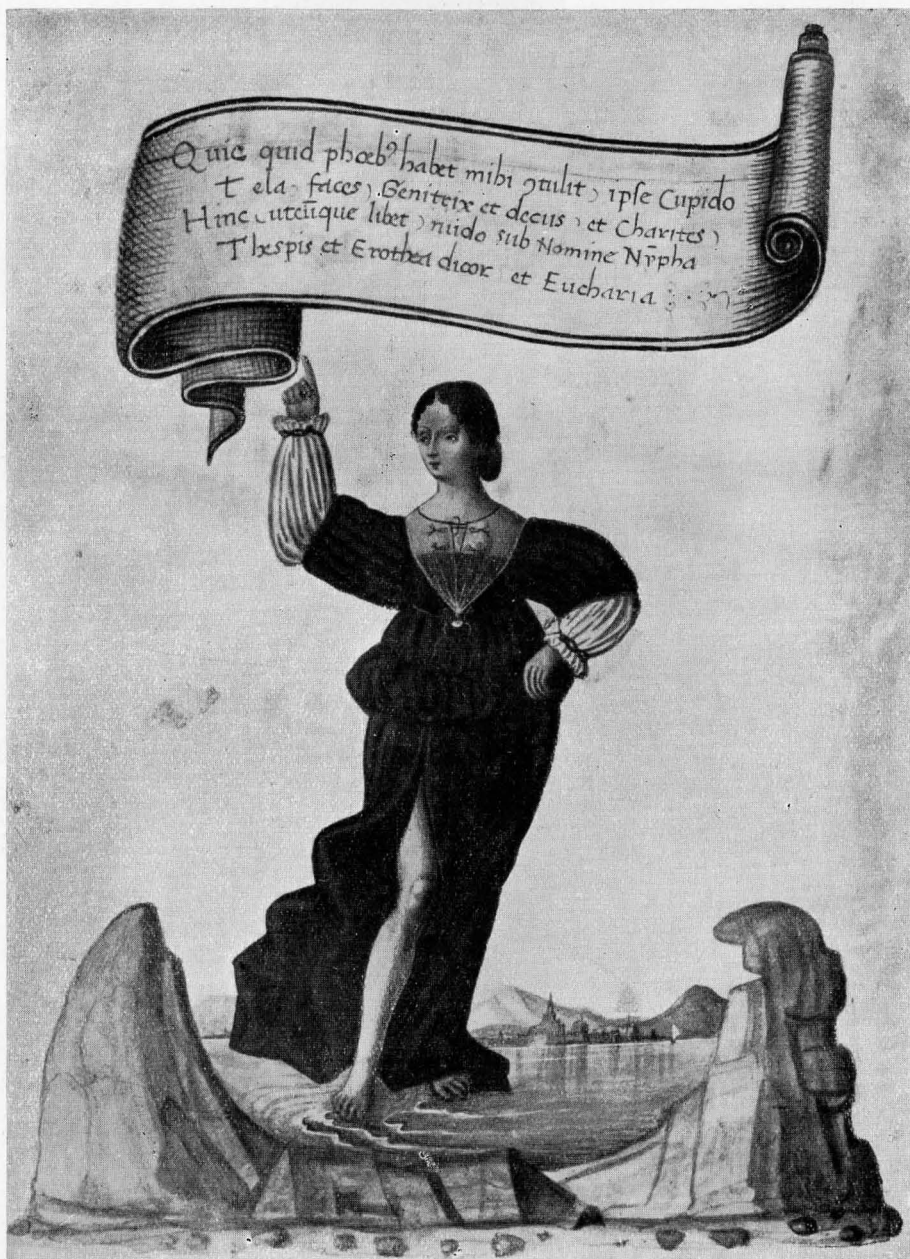 Quic quid phœbꝰ habet mihi ꝯtulit, ipſe Cupido
Tela, faces, Geniteix et decus, et Charites,
Hinc utcūque libet, nuido sub Nomine Nȳpha
Thespis et Erothea dicor et Eucharia